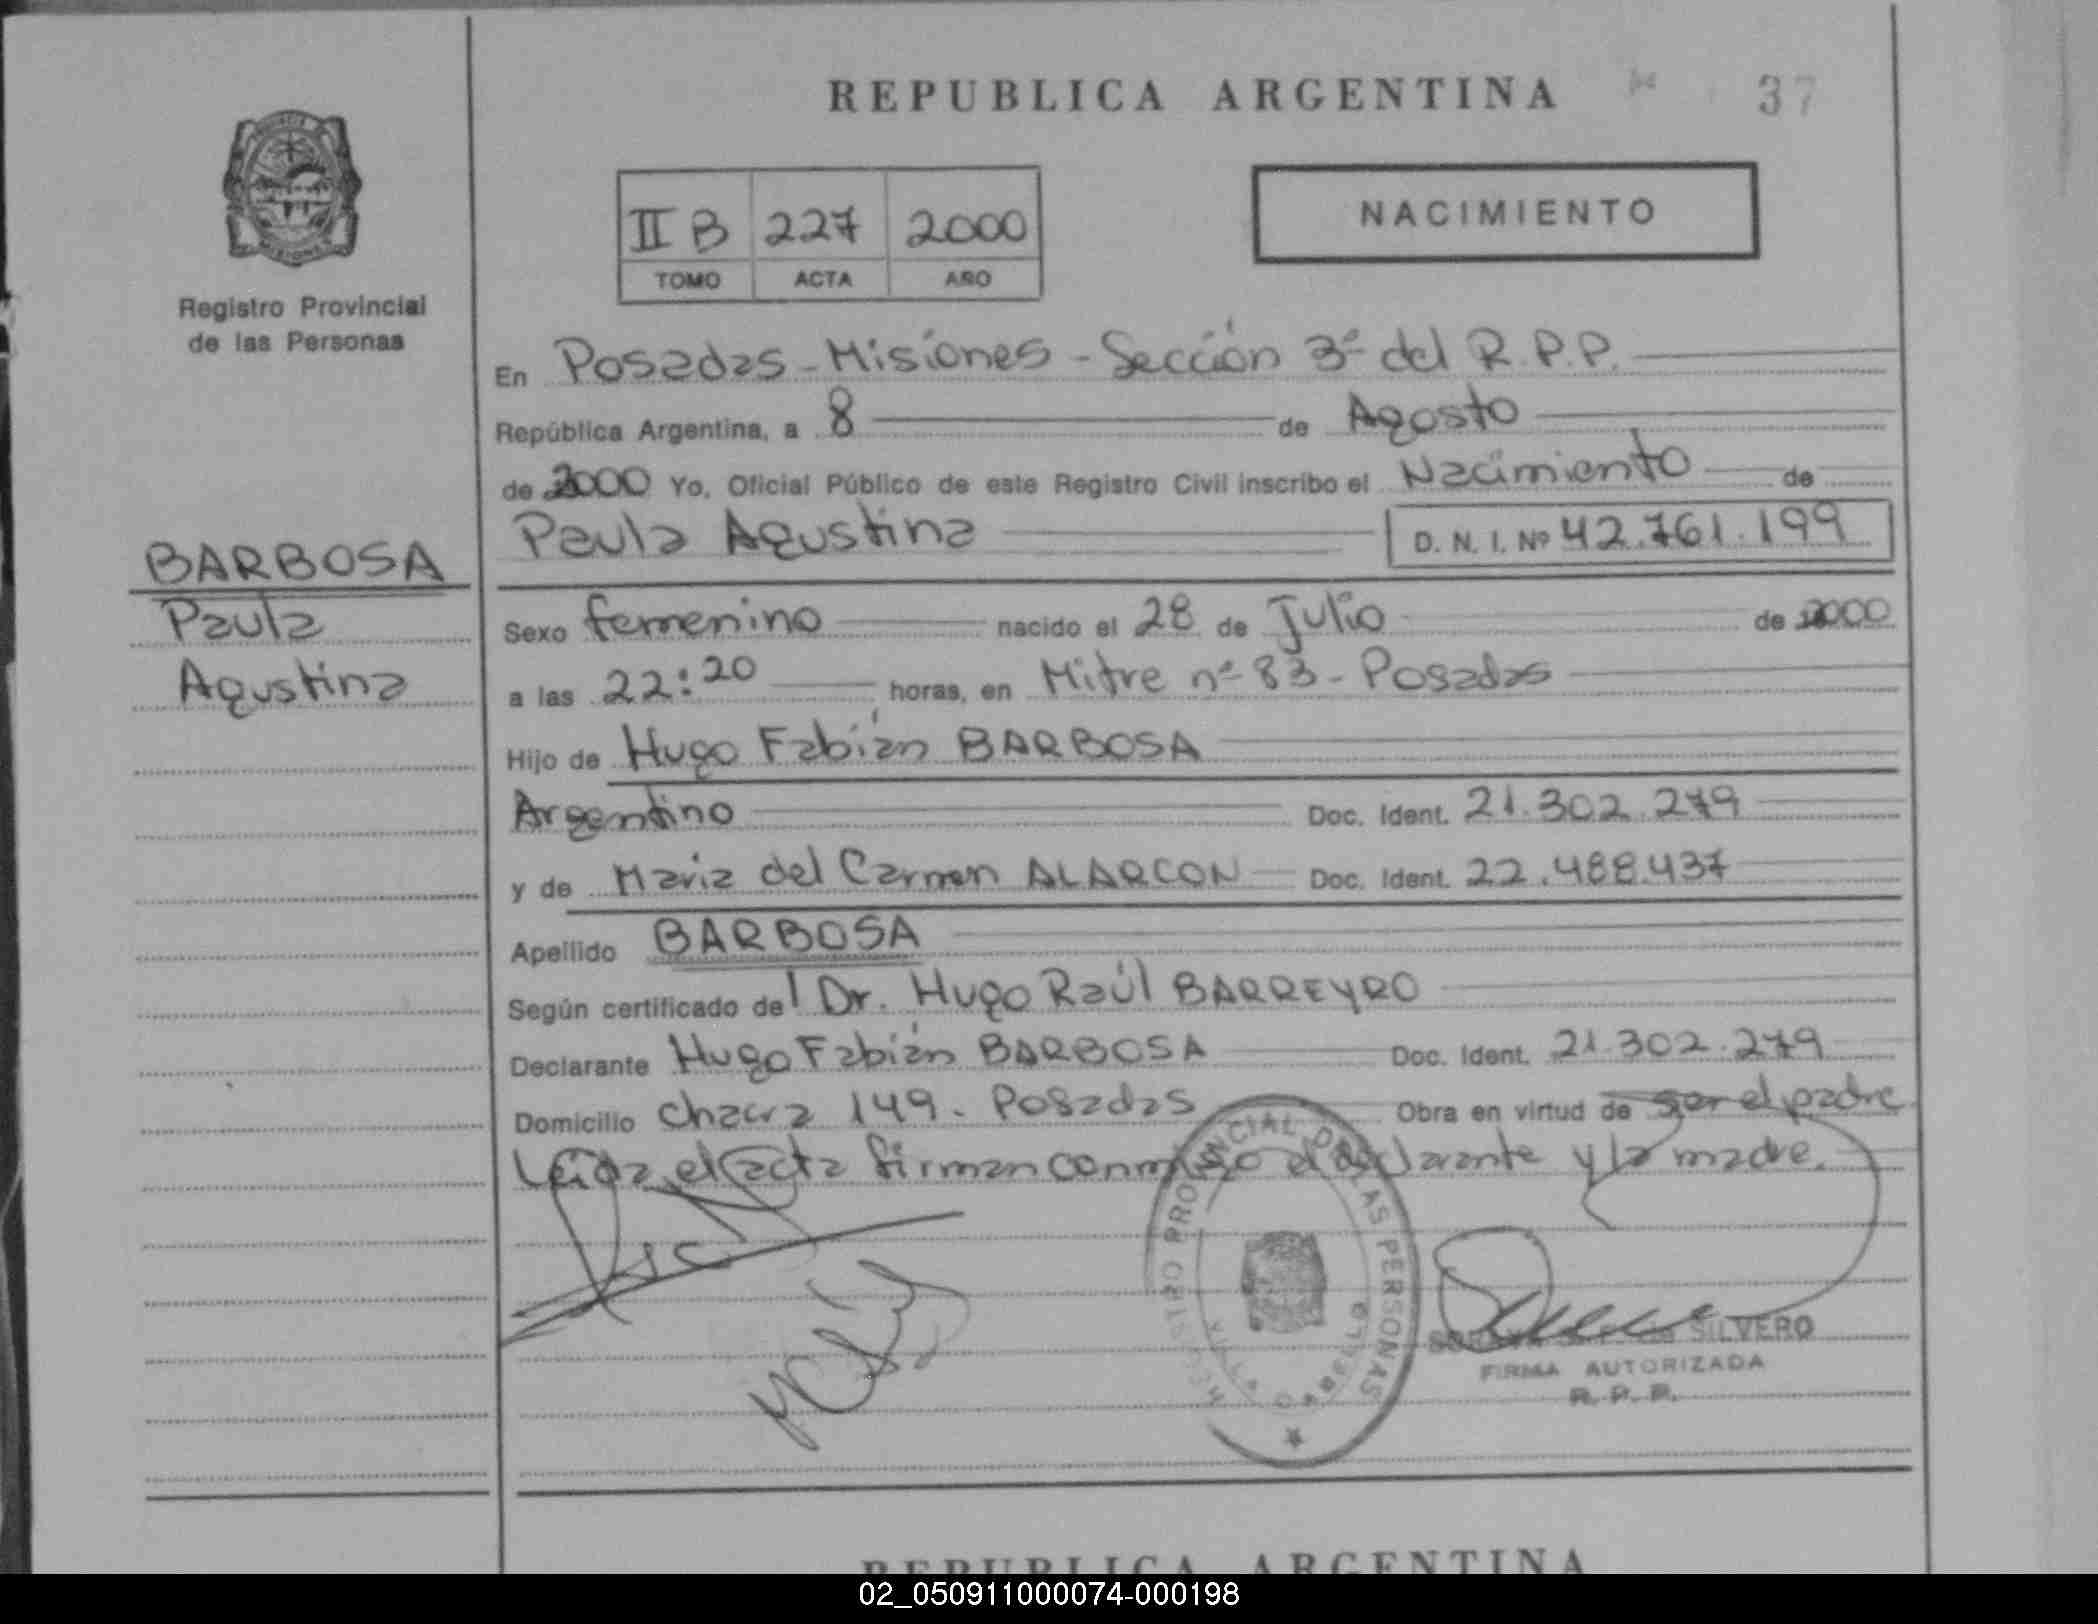 REPUBLICA ARGENTINA 37
II B 227 2000
TOMO ACTA AÑO
NACIMIENTO
Registro Provincial
de las Personas
En Posadas - Misiones - Sección 3ª del R.P.P.
República Argentina, a 8 de Agosto
de 2000 Yo, Oficial Público de este Registro Civil inscribo el Nacimiento de
Paula Agustina D. N. I. Nº 42.761.199
BARBOSA
Paula
Agustina
Sexo femenino nacido el 28 de Julio de 2000
a las 22:20 horas, en Mitre nº 83 - Posadas
Hijo de Hugo Fabián BARBOSA
Argentino Doc. Ident. 21.302.279
y de Maria del Carmen ALARCON Doc. Ident. 22.488.437
Apellido BARBOSA
Según certificado del Dr. Hugo Raúl BARREYRO
Declarante Hugo Fabián BARBOSA Doc. Ident. 21.302.279
Domicilio chacra 149. Posadas Obra en virtud de ser el padre
Leida el acta firman conmigo el declarante y la madre.
REGISTRO PROVINCIAL DE LAS PERSONAS
VILLA CABELLO
SILVERO
FIRMA AUTORIZADA
R. P. P.
REPUBLICA ARGENTINA
02_050911000074-000198